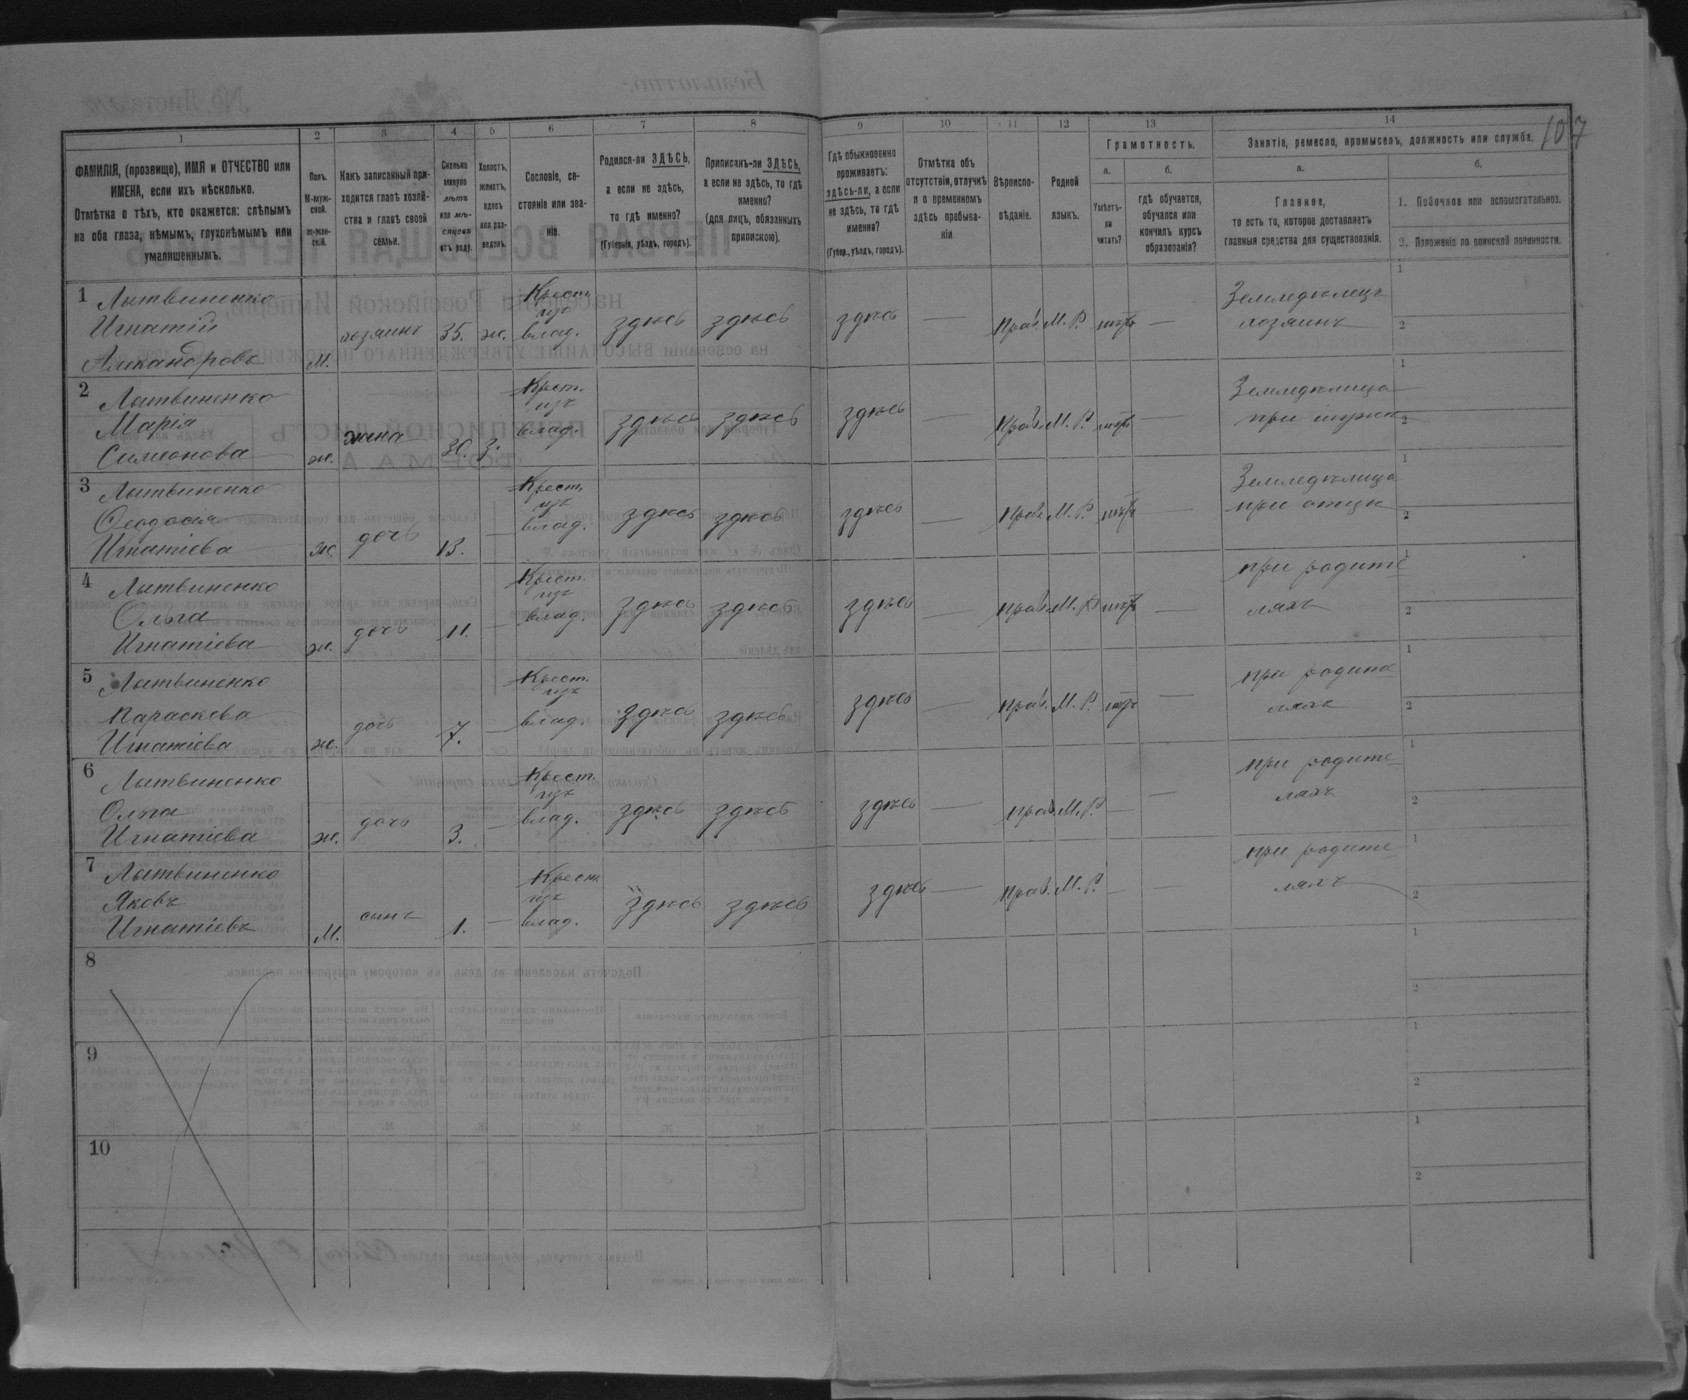 107
1
2
3
4
5
6
7
8
9
10
11
12
13
14
ФАМИЛІЯ, (прозвище), ИМЯ и ОТЧЕСТВО или
ИМЕНА, если ихъ нѣсколько.
Отмѣтка о тѣхъ, кто окажется: слѣпымъ
на оба глаза, нѣмымъ, глухонѣмымъ или
умалишеннымъ.
Полъ.
М-муж-
ской.
ж-жен-
скій.
Какъ записанный при-
ходится главѣ хозяй-
ства и главѣ своей
семьи.
Сколько
минуло
лѣтъ
или мѣ-
сяцевъ
отъ роду.
Холостъ,
женатъ,
вдовъ
или раз-
веденъ.
Сословіе, со-
стояніе или зва-
ніе.
Родился-ли ЗДѢСЬ,
а если не здѣсь,
то гдѣ именно?
(Губернія, уѣздъ, городъ).
Приписанъ-ли ЗДѢСЬ,
а если не здѣсь, то гдѣ
именно?
(для лицъ, обязанныхъ
припискою).
Гдѣ обыкновенно
проживаетъ:
здѣсь-ли, а если
не здѣсь, то гдѣ
именно?
(Губер., уѣздъ, городъ).
Отмѣтка объ
отсутствіи, отлучкѣ
и о временномъ
здѣсь пребыва-
ніи
Вѣроиспо-
вѣданіе.
Родной
языкъ.
Грамотность.
а.
Умѣетъ-
ли
читать?
б.
гдѣ обучается,
обучался или
кончилъ курсъ
образованія?
Занятіе, ремесло, промыселъ, должность или служба.
а.
Главное,
то есть то, которое доставляетъ
главныя средства для существованія.
б.
1. Побочное или вспомогательное.
2. Положеніе по воинской повинности.
1 Лытвиненко
Игнатій
Алекандровъ
М. хозяинъ 35. ж. Крест. изъ влад. здѣсь здѣсь здѣсь — Прав. М.Р. нѣтъ —
Земледѣлецъ
хозяинъ
1
2
2 Лытвиненко
Марія
Симеонова
ж. жена 30. З. Крест. изъ влад. здѣсь здѣсь здѣсь — Прав. М.Р. нѣтъ —
Земледѣлица
при мужѣ
1
2
3 Лытвиненко
Ѳеодосія
Игнатіева
ж. дочь 13. — Крест. изъ влад. здѣсь здѣсь здѣсь — Прав. М.Р. нѣтъ —
Земледѣлица
при отцѣ
1
2
4 Лытвиненко
Ольга
Игнатіева
ж. дочь 11. — Крест. изъ влад. здѣсь здѣсь здѣсь — Прав. М.Р. нѣтъ —
при родите-
ляхъ
1
2
5 Лытвиненко
Параскева
Игнатіева
ж. дочь 7. — Крест. изъ влад. здѣсь здѣсь здѣсь — Прав. М.Р. нѣтъ —
при родите-
ляхъ
1
2
6 Лытвиненко
Ольга
Игнатіева
ж. дочь 3. — Крест. изъ влад. здѣсь здѣсь здѣсь — Прав. М.Р. — —
при родите-
ляхъ
1
2
7 Лытвиненко
Яковъ
Игнатіевъ
М. сынъ 1. — Крест. изъ влад. здѣсь здѣсь здѣсь — Прав. М.Р. — —
при родите-
ляхъ
1
2
8
1
2
9
1
2
10
1
2